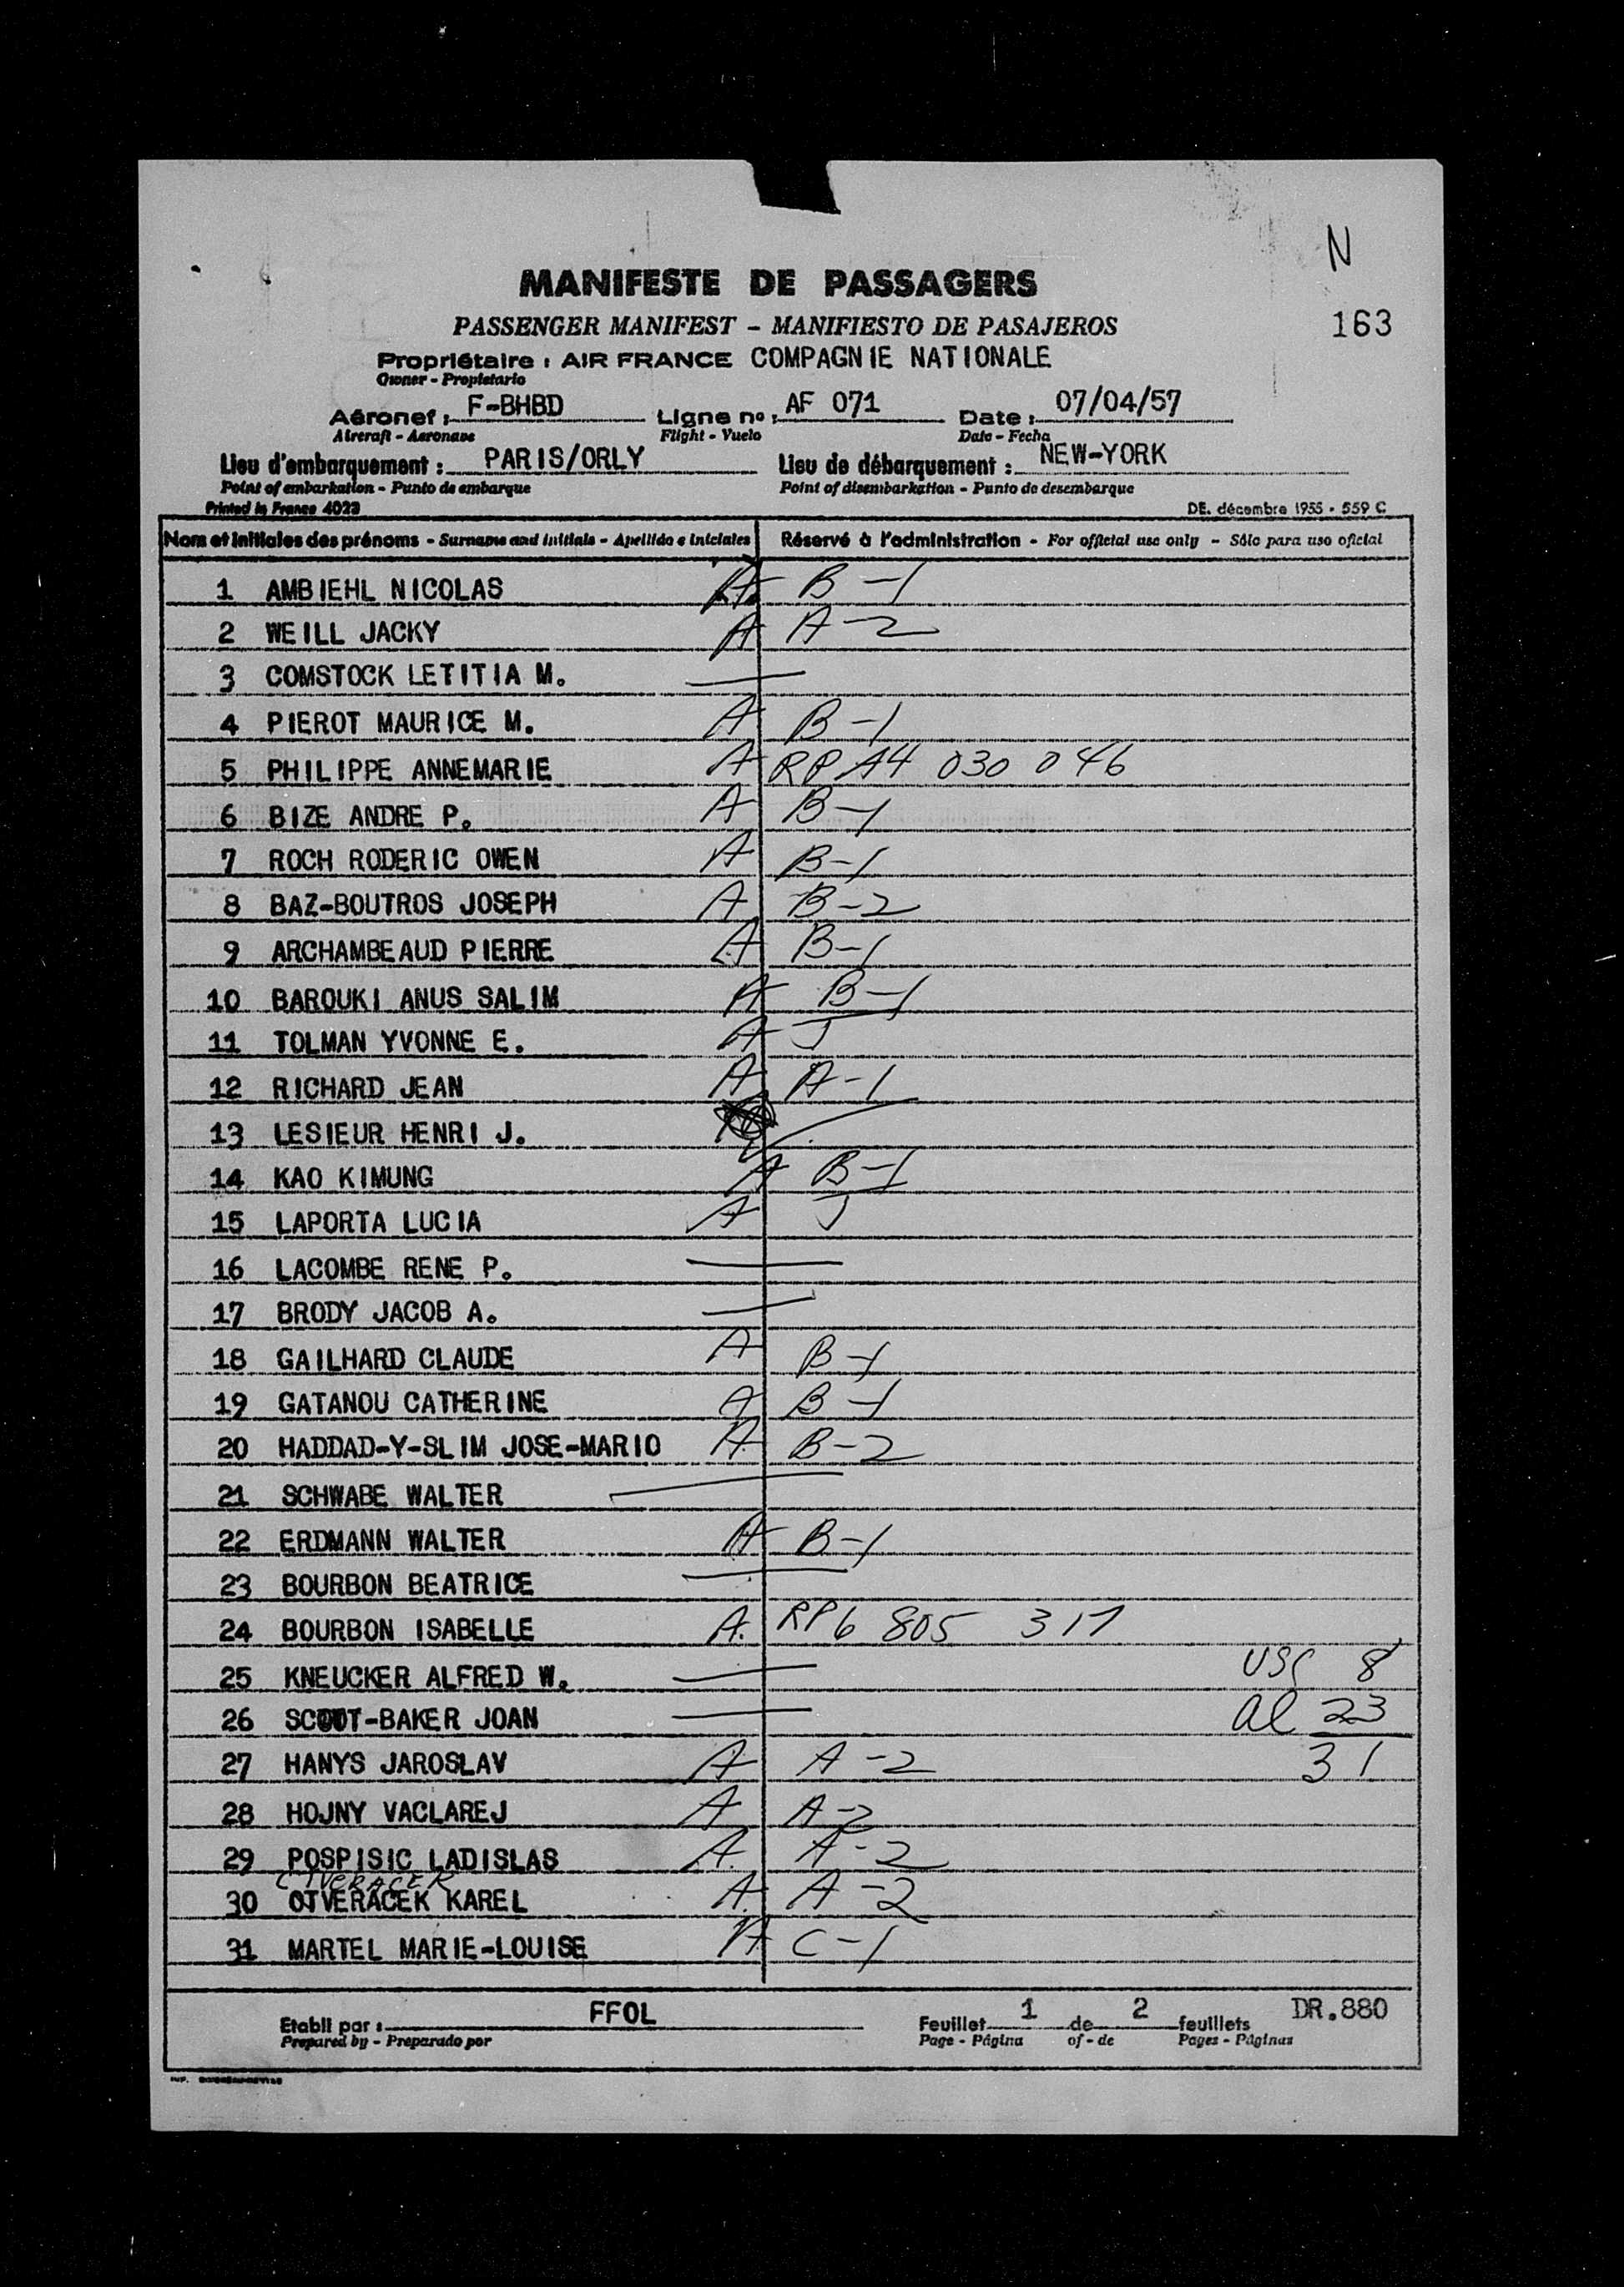 N
MANIFESTE DE PASSAGERS
PASSENGER MANIFEST - MANIFIESTO DE PASAJEROS
163
Propriétaire : AIR FRANCE COMPAGNIE NATIONALE
Owner - Propietario
Aéronef : F-BHBD Ligne no : AF 071 Date : 07/04/57
Aircraft - Aeronave Flight - Vuelo Date - Fecha
Lieu d'embarquement : PARIS/ORLY Lieu de débarquement : NEW-YORK
Point of embarkation - Punto de embarque Point of disembarkation - Punto de desembarque
Printed in France 4023 DE. décembre 1955 - 559 C
Nom et initiales des prénoms - Surname and initials - Apellido e iniciales Réservé à l'administration - For official use only - Sólo para uso oficial
1 AMBIEHL NICOLAS A B-1
2 WEILL JACKY A A-2
3 COMSTOCK LETITIA M. —
4 PIEROT MAURICE M. A B-1
5 PHILIPPE ANNEMARIE A RP A4 030 046
6 BIZE ANDRE P. A B-1
7 ROCH RODERIC OWEN A B-1
8 BAZ-BOUTROS JOSEPH A B-2
9 ARCHAMBEAUD PIERRE A B-1
10 BAROUKI ANUS SALIM A B-1
11 TOLMAN YVONNE E. A J
12 RICHARD JEAN A A-1
13 LESIEUR HENRI J.
14 KAO KIMUNG A B-1
15 LAPORTA LUCIA A J
16 LACOMBE RENE P. —
17 BRODY JACOB A. —
18 GAILHARD CLAUDE A B-1
19 GATANOU CATHERINE A B-1
20 HADDAD-Y-SLIM JOSE-MARIO A B-2
21 SCHWABE WALTER —
22 ERDMANN WALTER A B-1
23 BOURBON BEATRICE —
24 BOURBON ISABELLE A. RP6 805 317
25 KNEUCKER ALFRED W. — USC 8
26 SCOOT-BAKER JOAN — al 23
27 HANYS JAROSLAV A A-2 31
28 HOJNY VACLAREJ A A-2
29 POSPISIC LADISLAS A. A-2
CTVERACEK
30 OTVERACEK KAREL A. A-2
31 MARTEL MARIE-LOUISE A C-1
Etabli par : FFOL Feuillet 1 de 2 feuillets DR.880
Prepared by - Preparado por Page - Página of - de Pages - Páginas